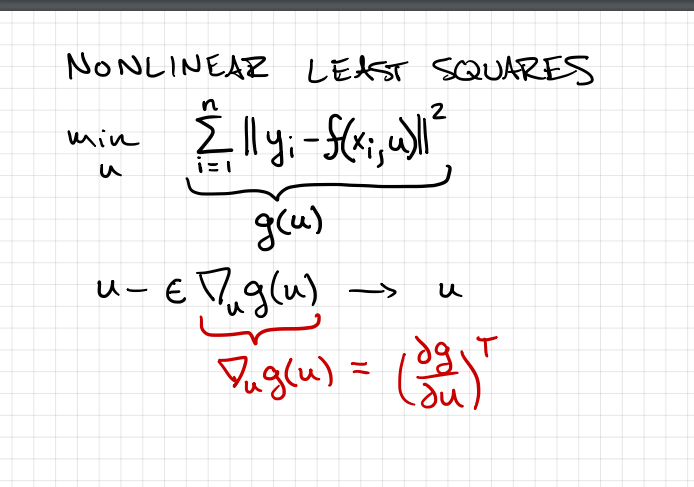 NONLINEAR LEAST SQUARES
min_u ∑_{i=1}^{n} ‖y_i - f(x_i, u)‖^2
g(u)
u - ϵ ∇_u g(u) → u
∇_u g(u) = (∂g/∂u)^T